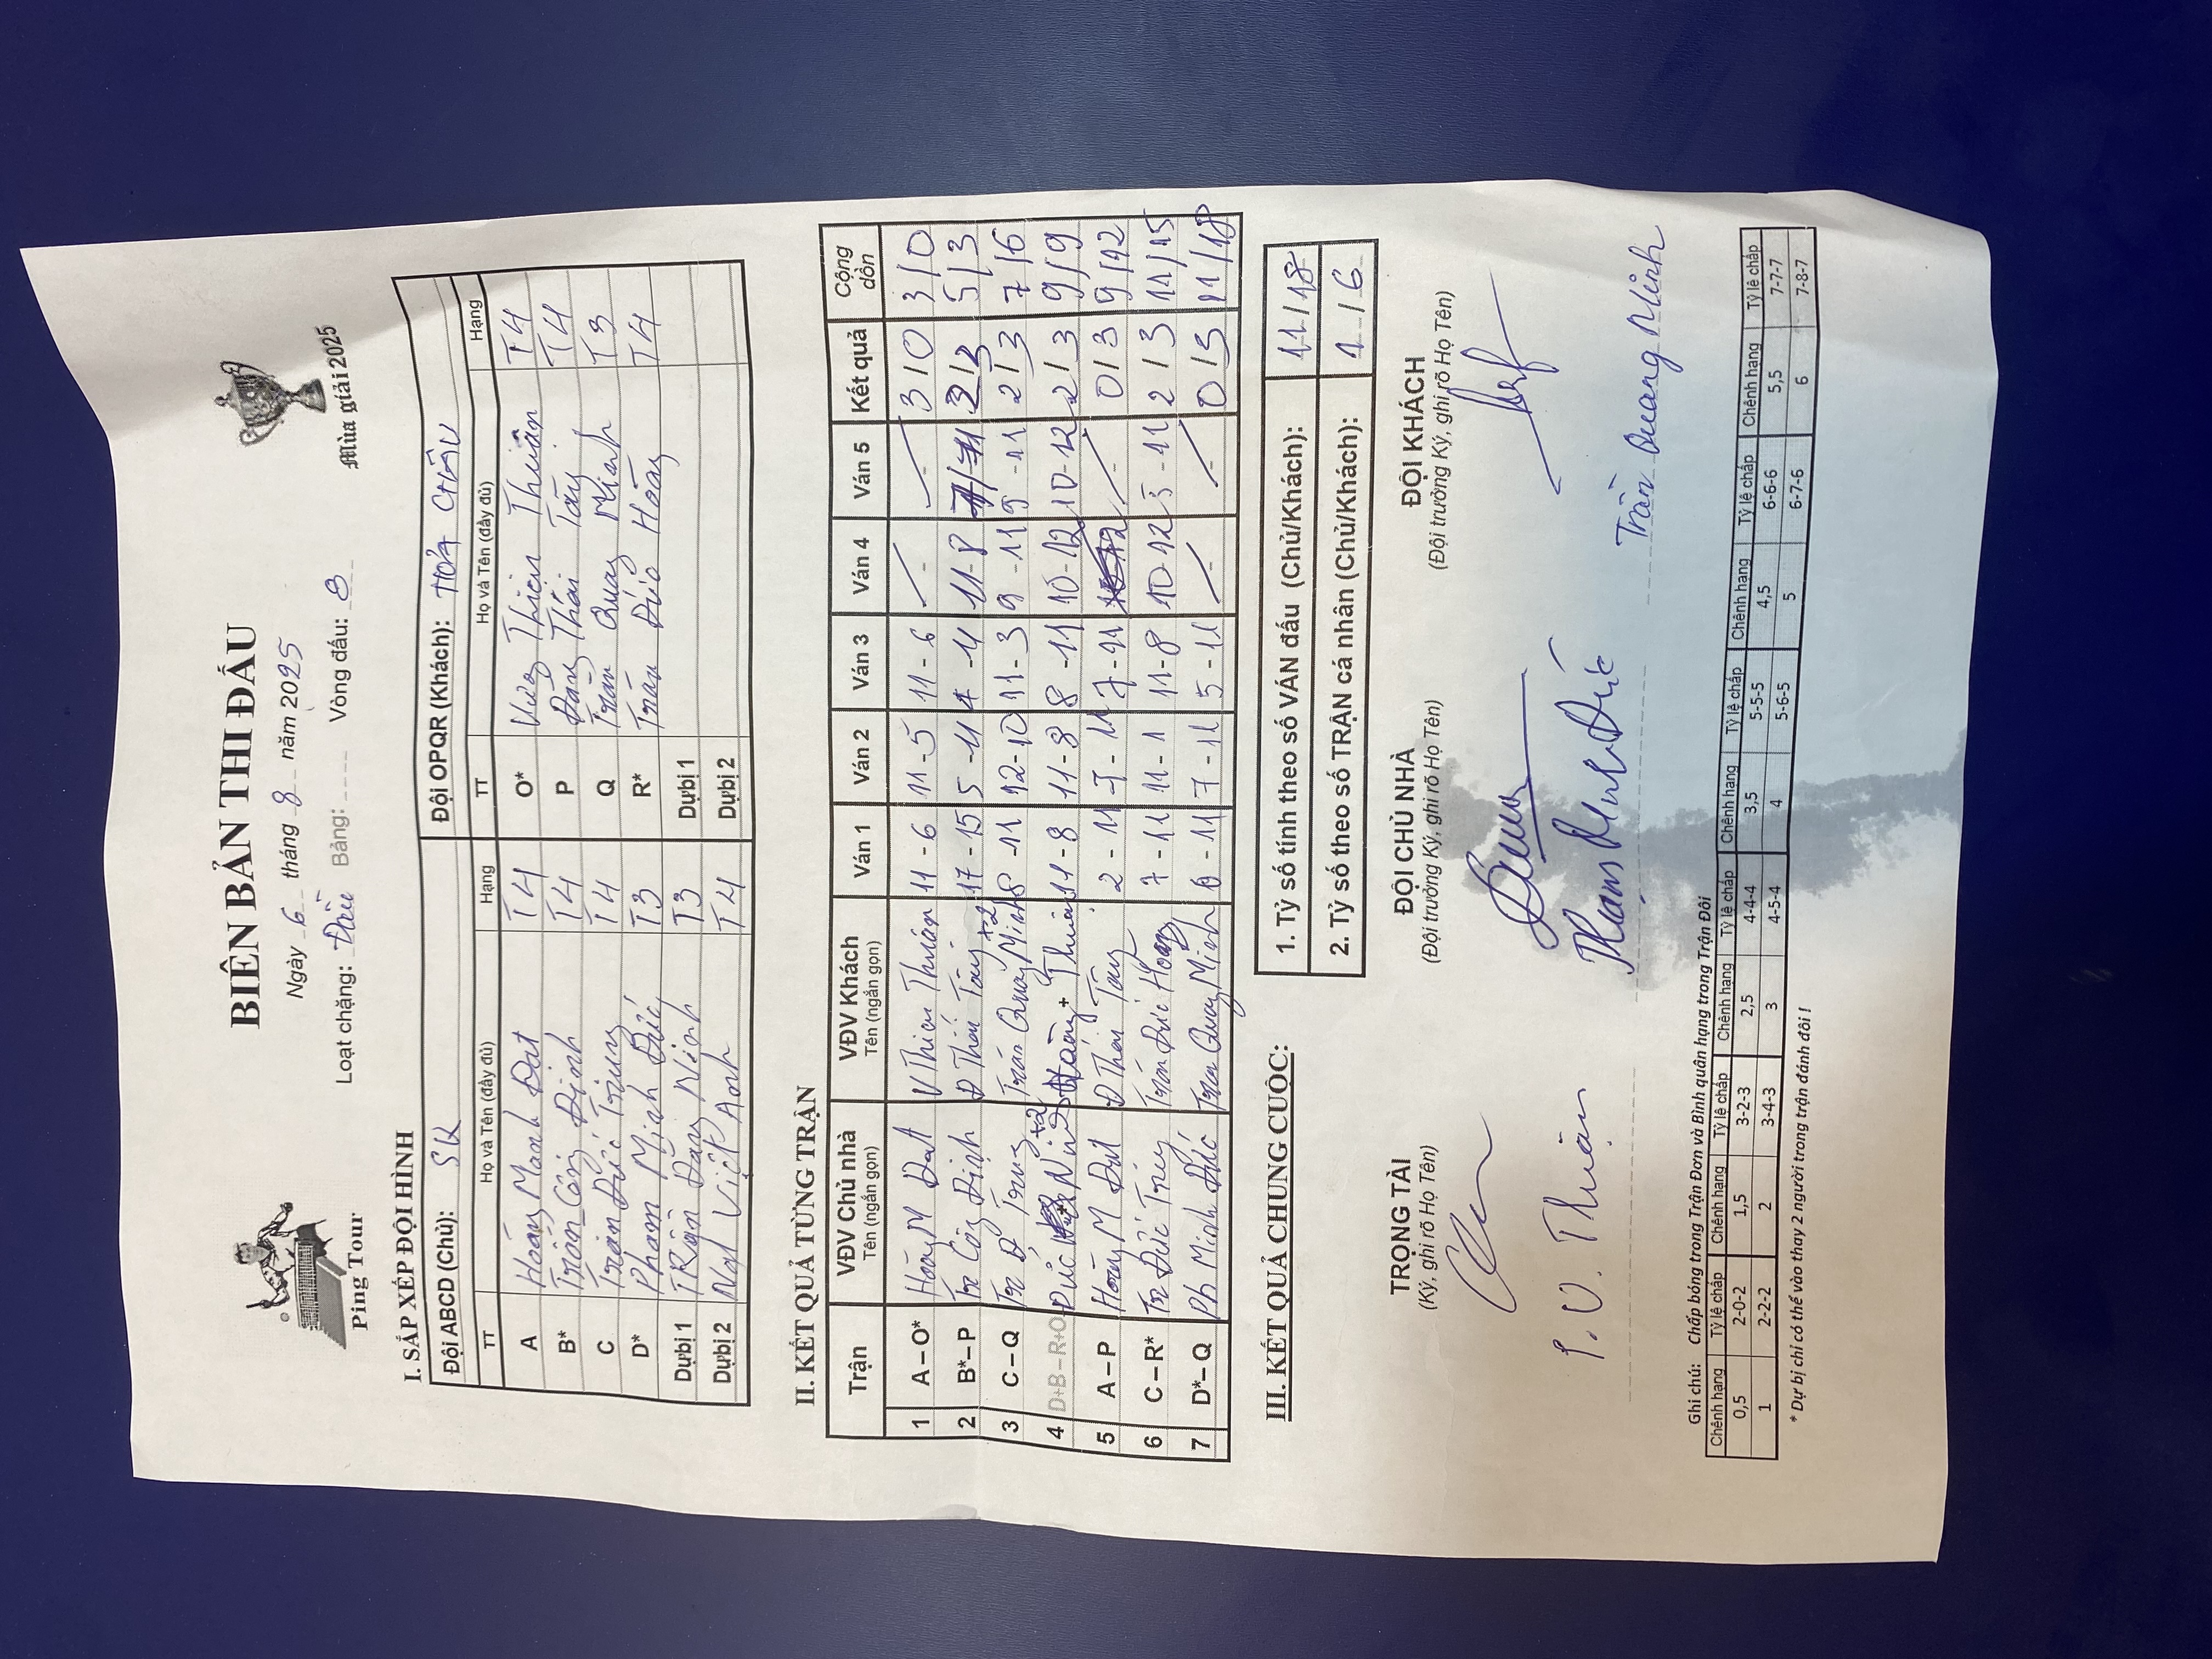 BIÊN BẢN THI ĐẤU
Ngày 6 tháng 8 năm 2025
Loạt chặng: Đầu Bảng: Vòng đấu: 8
Ping Tour
Mùa giải 2025
I. SẮP XẾP ĐỘI HÌNH
Đội ABCD (Chủ): SK Đội OPQR (Khách): HỎA CHÂU
TT Họ và Tên (đầy đủ) Hạng TT Họ và Tên (đầy đủ) Hạng
A Hoàng Mạnh Đạt T4 O* Vương Thiện Thuần T4
B* Trần Công Định T4 P Đặng Thái Tây T4
C Trần Đức Trung T4 Q Trần Quang Minh T3
D* Phạm Minh Đức T3 R* Trần Đức Hoàng T4
Dự bị 1 Trần Đăng Ninh T3 Dự bị 1
Dự bị 2 Ngô Việt Anh T4 Dự bị 2
II. KẾT QUẢ TỪNG TRẬN
Trận VĐV Chủ nhà Tên (ngắn gọn) VĐV Khách Tên (ngắn gọn) Ván 1 Ván 2 Ván 3 Ván 4 Ván 5 Kết quả Cộng dồn
1 A – O* Hoàng M Đạt V Thiện Thuần 11 - 6 11 - 5 11 - 6 - - 3 / 0 3 / 0
2 B* – P Tr Công Định Đ Thái Tây 17 - 15 5 - 11 4 - 11 11 - 8 2 / 3 5 / 3
3 C – Q Tr Đ Trung +2 Trần Quang Minh +2 8 - 11 12 - 10 11 - 3 9 - 11 9 - 11 2 / 3 7 / 6
4 D+B – R+O Đức + Ninh Hoàng + Thuần 11 - 8 11 - 8 8 - 11 10 - 12 10 - 12 2 / 3 9 / 9
5 A – P Hoàng M Đạt Đ Thái Tây 2 - 11 7 - 11 7 - 11 - 0 / 3 9 / 12
6 C – R* Tr Đức Trung Trần Đức Hoàng 7 - 11 11 - 1 11 - 8 10 - 12 5 - 11 2 / 3 11 / 15
7 D* – Q Ph Minh Đức Trần Quang Minh 6 - 11 7 - 11 5 - 11 - - 0 / 3 11 / 18
III. KẾT QUẢ CHUNG CUỘC:
1. Tỷ số tính theo số VÁN đấu (Chủ/Khách): 11 / 18
2. Tỷ số theo số TRẬN cá nhân (Chủ/Khách): 1 / 6
TRỌNG TÀI ĐỘI CHỦ NHÀ ĐỘI KHÁCH
(Ký, ghi rõ Họ Tên) (Đội trưởng Ký, ghi rõ Họ Tên) (Đội trưởng Ký, ghi rõ Họ Tên)
Phạm Minh Đức Trần Quang Minh
Ghi chú: Chấp bóng trong Trận Đơn và Bình quân hạng trong Trận Đôi
Chênh hạng Tỷ lệ chấp Chênh hạng Tỷ lệ chấp Chênh hạng Tỷ lệ chấp Chênh hạng Tỷ lệ chấp Chênh hạng Tỷ lệ chấp Chênh hạng Tỷ lệ chấp
0,5 2-0-2 1,5 3-2-3 2,5 4-4-4 3,5 5-5-5 4,5 6-6-6 5,5 7-7-7
1 2-2-2 2 3-4-3 3 4-5-4 4 5-6-5 5 6-7-6 6 7-8-7
* Dự bị chỉ có thể vào thay 2 người trong trận đánh đôi !